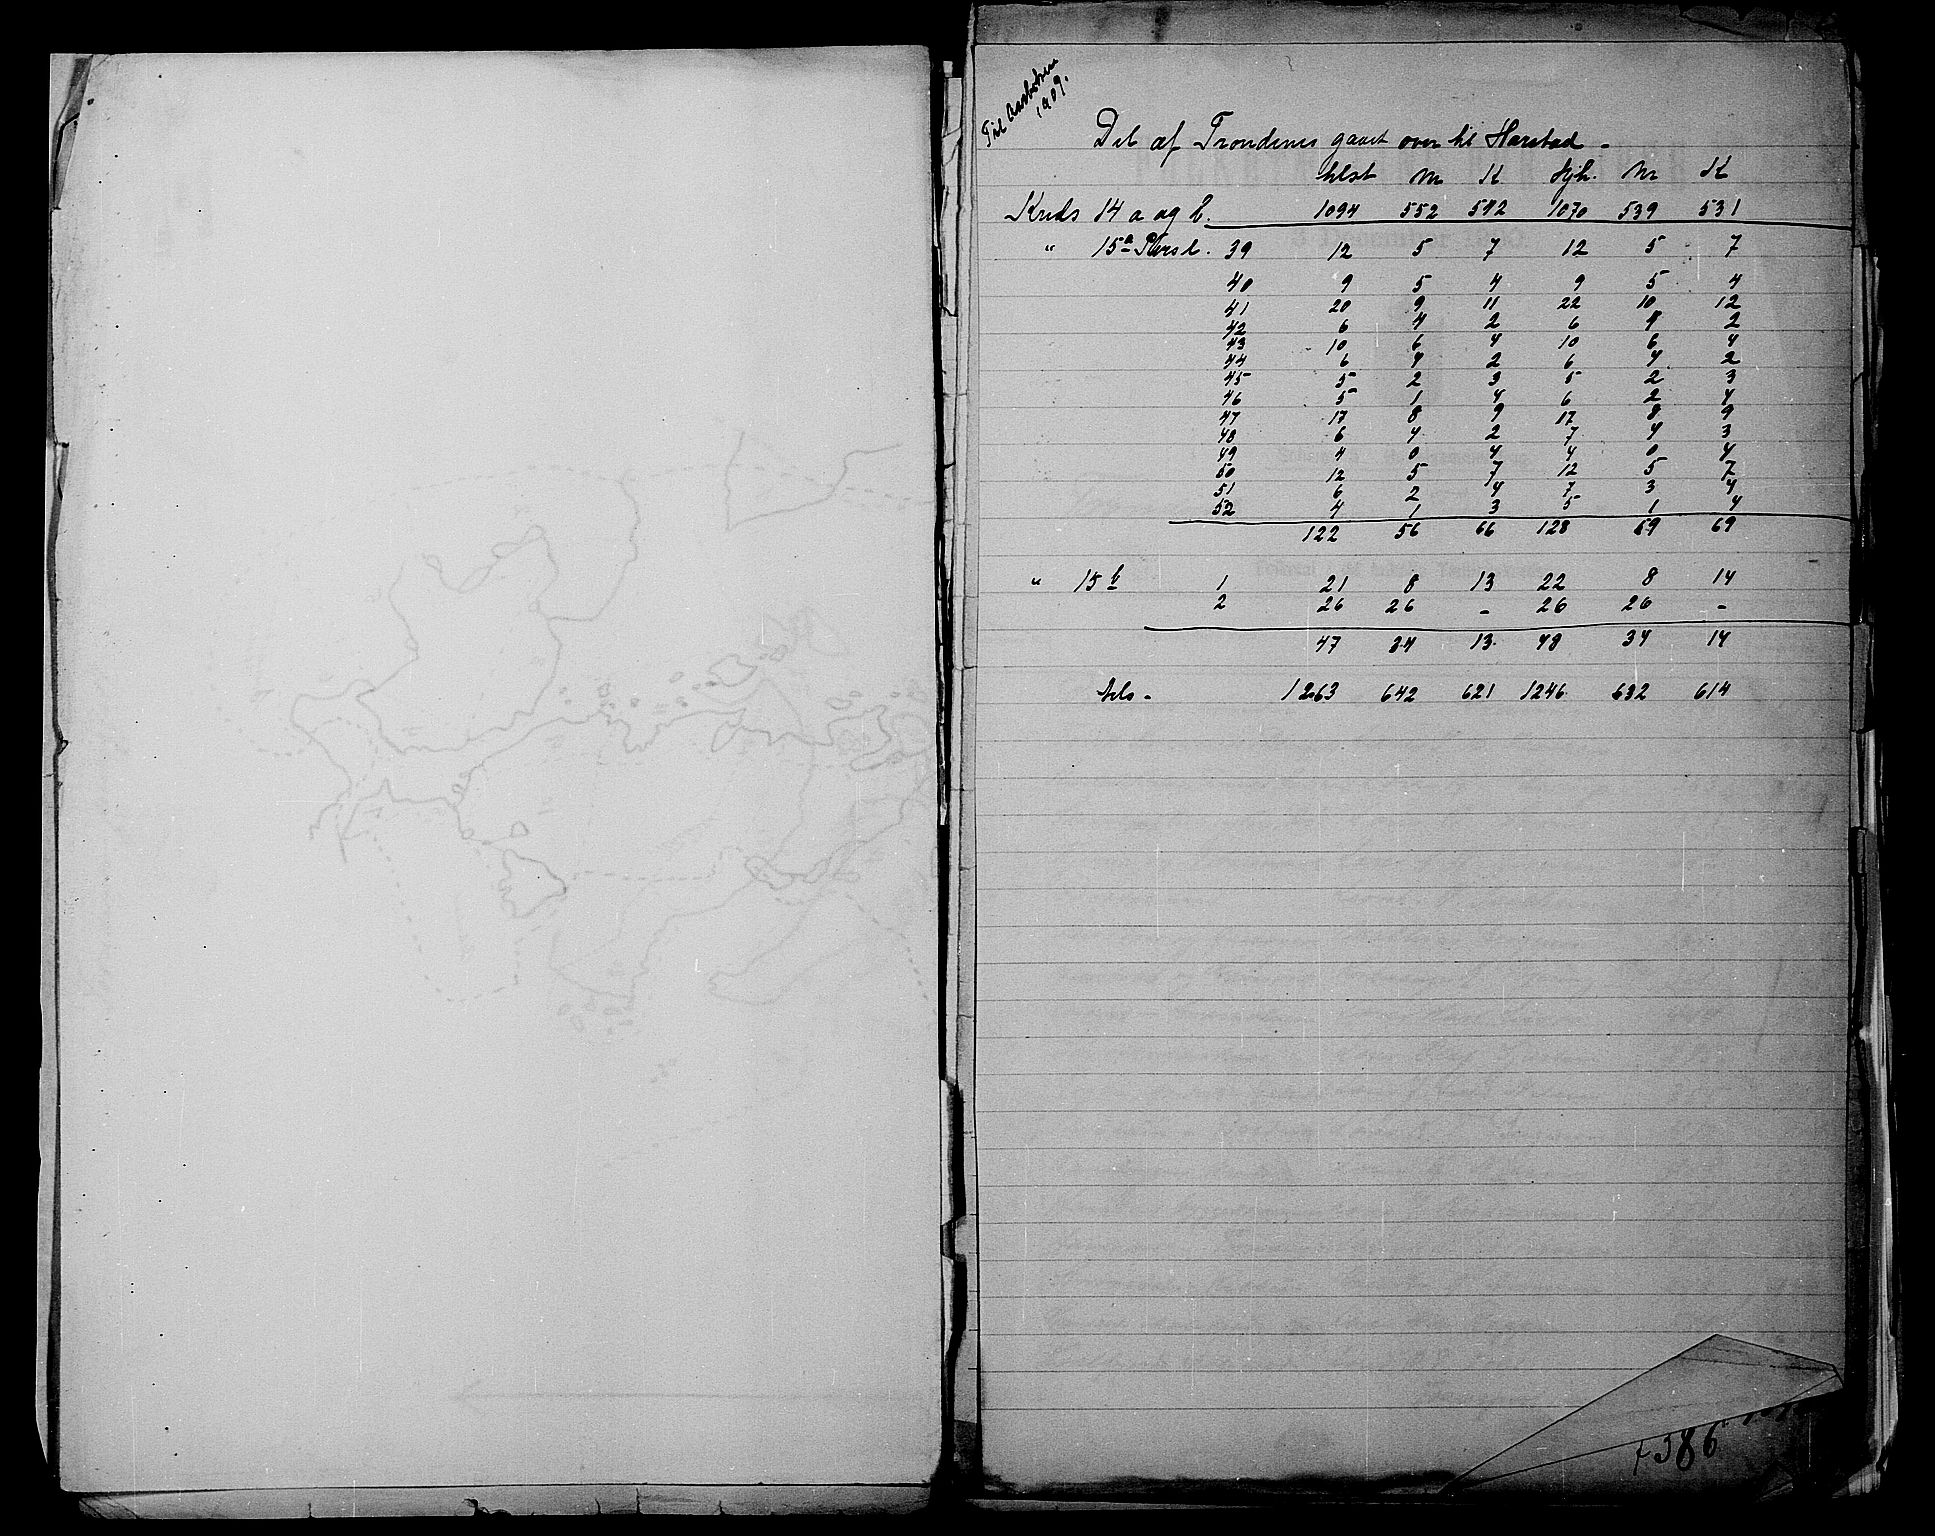 Til Aarboken
1909.
Del af Trondenes gaaet over til Harstad -
tilst M K Hjh. M K
Kreds 14 a og b. 1094 552 542 1070 539 531
" 15a Persl. 39 12 5 7 12 5 7
40 9 5 4 9 5 4
41 20 9 11 22 10 12
42 6 4 2 6 4 2
43 10 6 4 10 6 4
44 6 4 2 6 4 2
45 5 2 3 5 2 3
46 5 1 4 6 2 4
47 17 8 9 17 8 9
48 6 4 2 7 4 3
49 4 0 4 4 0 4
50 12 5 7 12 5 7
51 6 2 4 7 3 4
52 4 1 3 5 1 4
122 56 66 128 59 69
" 15 b 1 21 8 13 22 8 14
2 26 26 - 26 26 -
47 34 13. 48 34 14
tils - 1263 642 621 1246 632 614
386